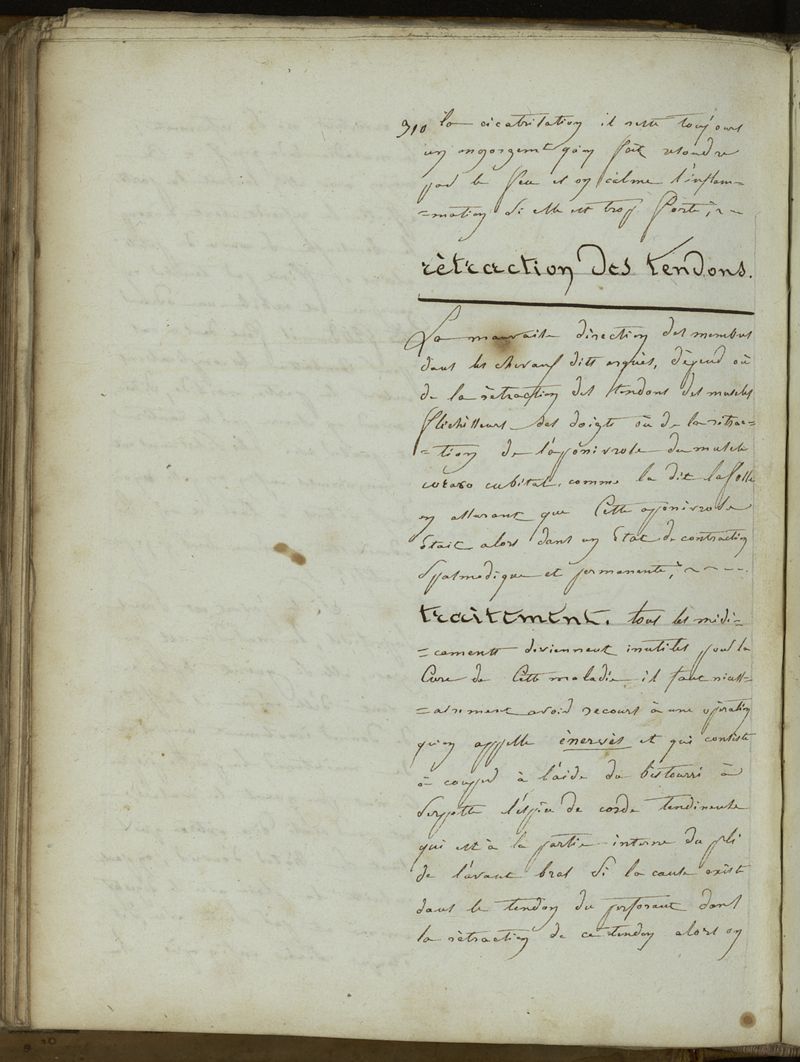 310 la cicatrisation il reste toujours
un engorgement qu'on fait resoudre
par le feu et on calme l'inflam=
=mation si elle est trop forte;~~
rètraction des tendons.
La mauvaise direction des membres
dans les chevaux dits arqués, dèpend où
de la rètraction des tendons des muscles
flèchisseurs des doigts où de la rètrac=
=tion de l'aponivrose du muscle
coraco cubital, comme la dit lafosse
en assurant que cette aponivrose
ètait alors dans un ètat de contraction
spasmodique et permanente;~~---
traitement. tous les medi=
=caments deviennent inutiles pour la
Cure de cette maladie il faut nècess=
=airement avoir recours à une opèration
qu'on appelle ènervès et qui consiste
à couper à l'aide du bistourri à
serpette l'espèce de corde tendineuse
qui est à la partie interne du pli
de l'avant bras si la cause existe
dans le tendon du perforant dans
la rètraction de ce tendon alors on